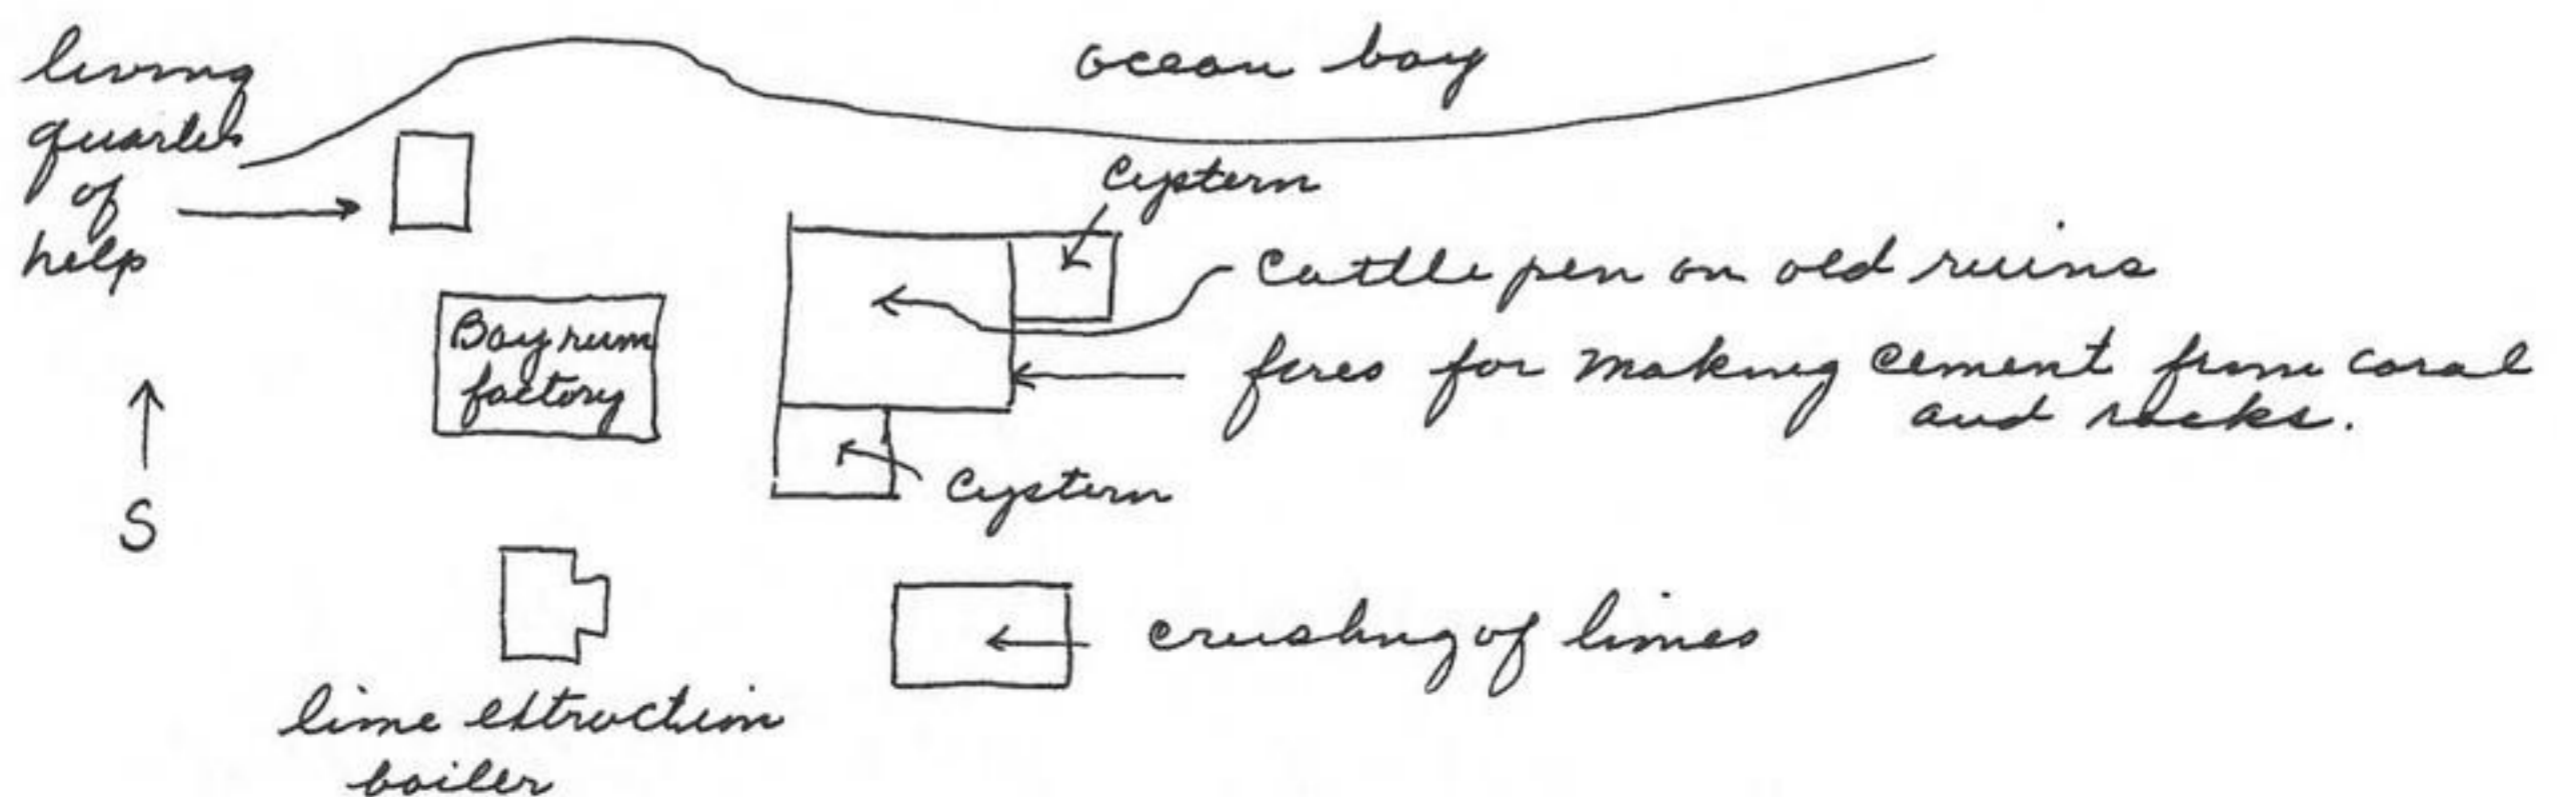 living
quarters
of
help
ocean bay
Cystern
Cattle pen on old ruins
Bay rum
factory
fires for making cement from coral
and rocks.
S
Cystern
crushing of limes
lime extraction
boiler